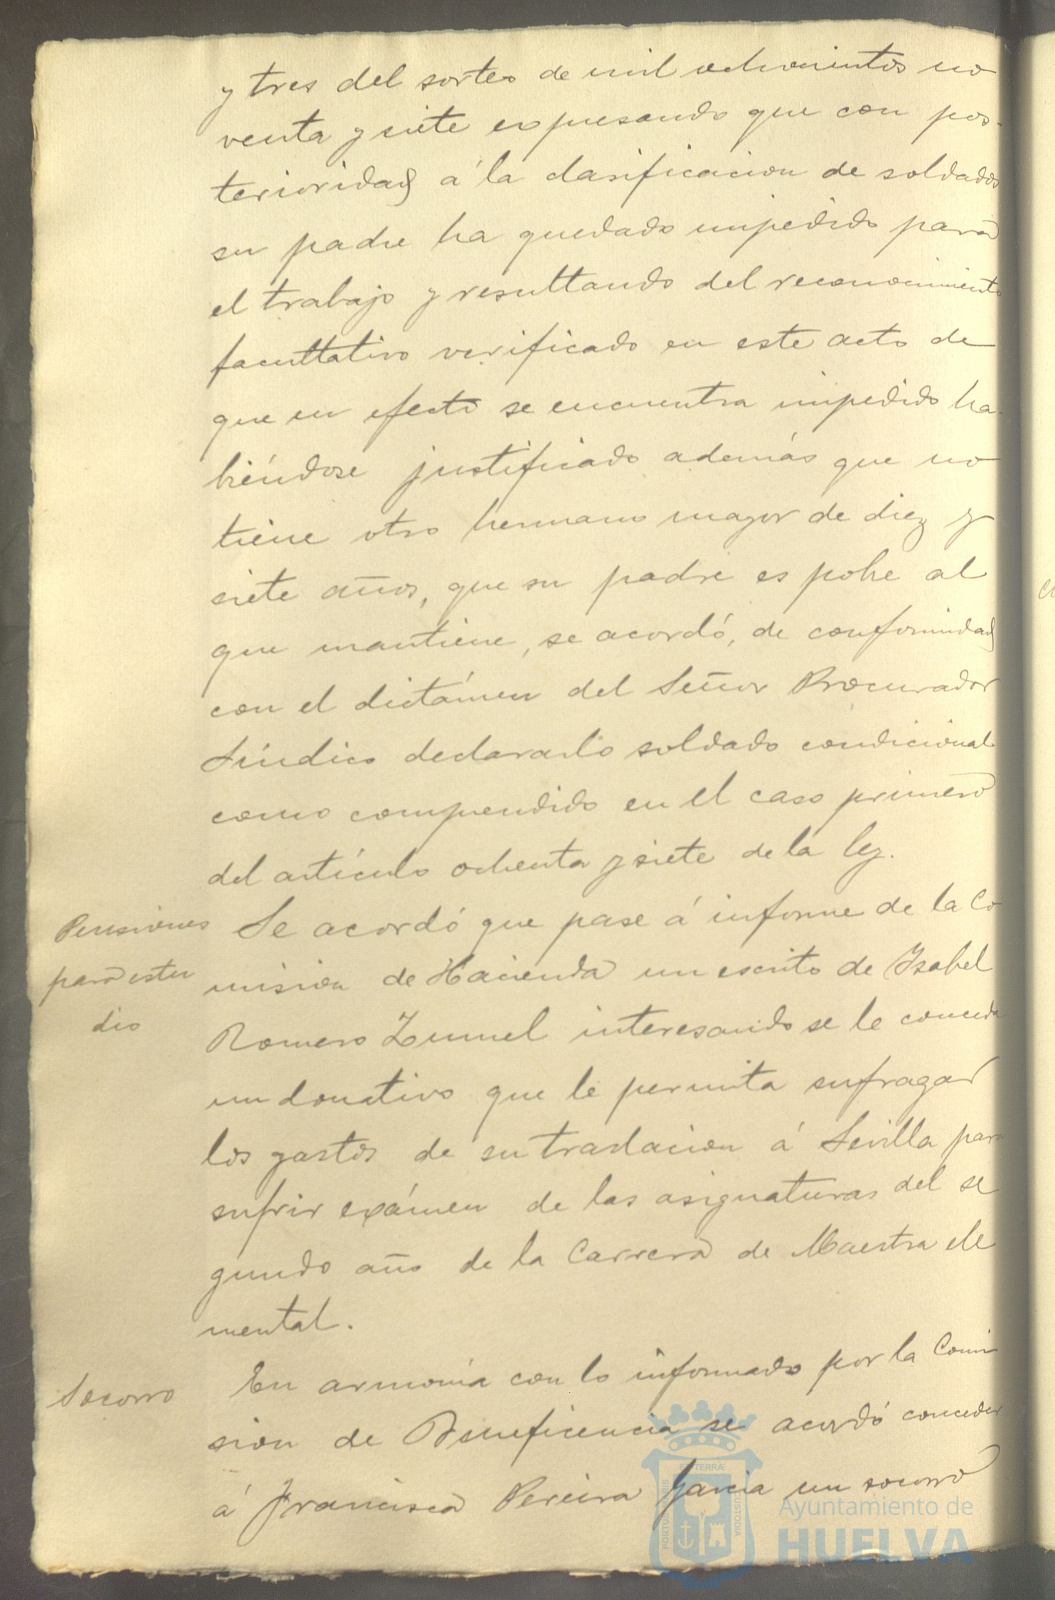 y tres del sorteo de mil ochocientos no
venta y siete expresando que con pos-
terioridad á la clasificacion de soldados
su padre ha quedado impedido para
el trabajo y resultando del reconocimiento
facultativo verificado en este acto de
que en efecto se encuentra impedido ha-
biéndose justificado además que no
tiene otro hermano mayor de diez y
siete años, que su padre es pobre al
que mantiene, se acordó, de conformidad
con el dictámen del Señor Procurador
Síndico declararlo soldado condicional
como comprendido en el caso primero
del artículo ochenta y siete de la ley.
Pensiones
para estu
dio
Se acordó que pase á informe de la Co
mision de Hacienda un escrito de Isabel
Romero Zunnel interesando se le conceda
un donativo que le permita sufragar
los gastos de su traslacion á Sevilla para
sufrir exámen de las asignaturas del se
gundo año de la Carrera de Maestra ele
mental.
Socorro
En armonía con lo informado por la Comi
sion de Beneficencia se acordó conceder
á Francisca Pereira Garcia un socorro
Ayuntamiento de
HUELVA